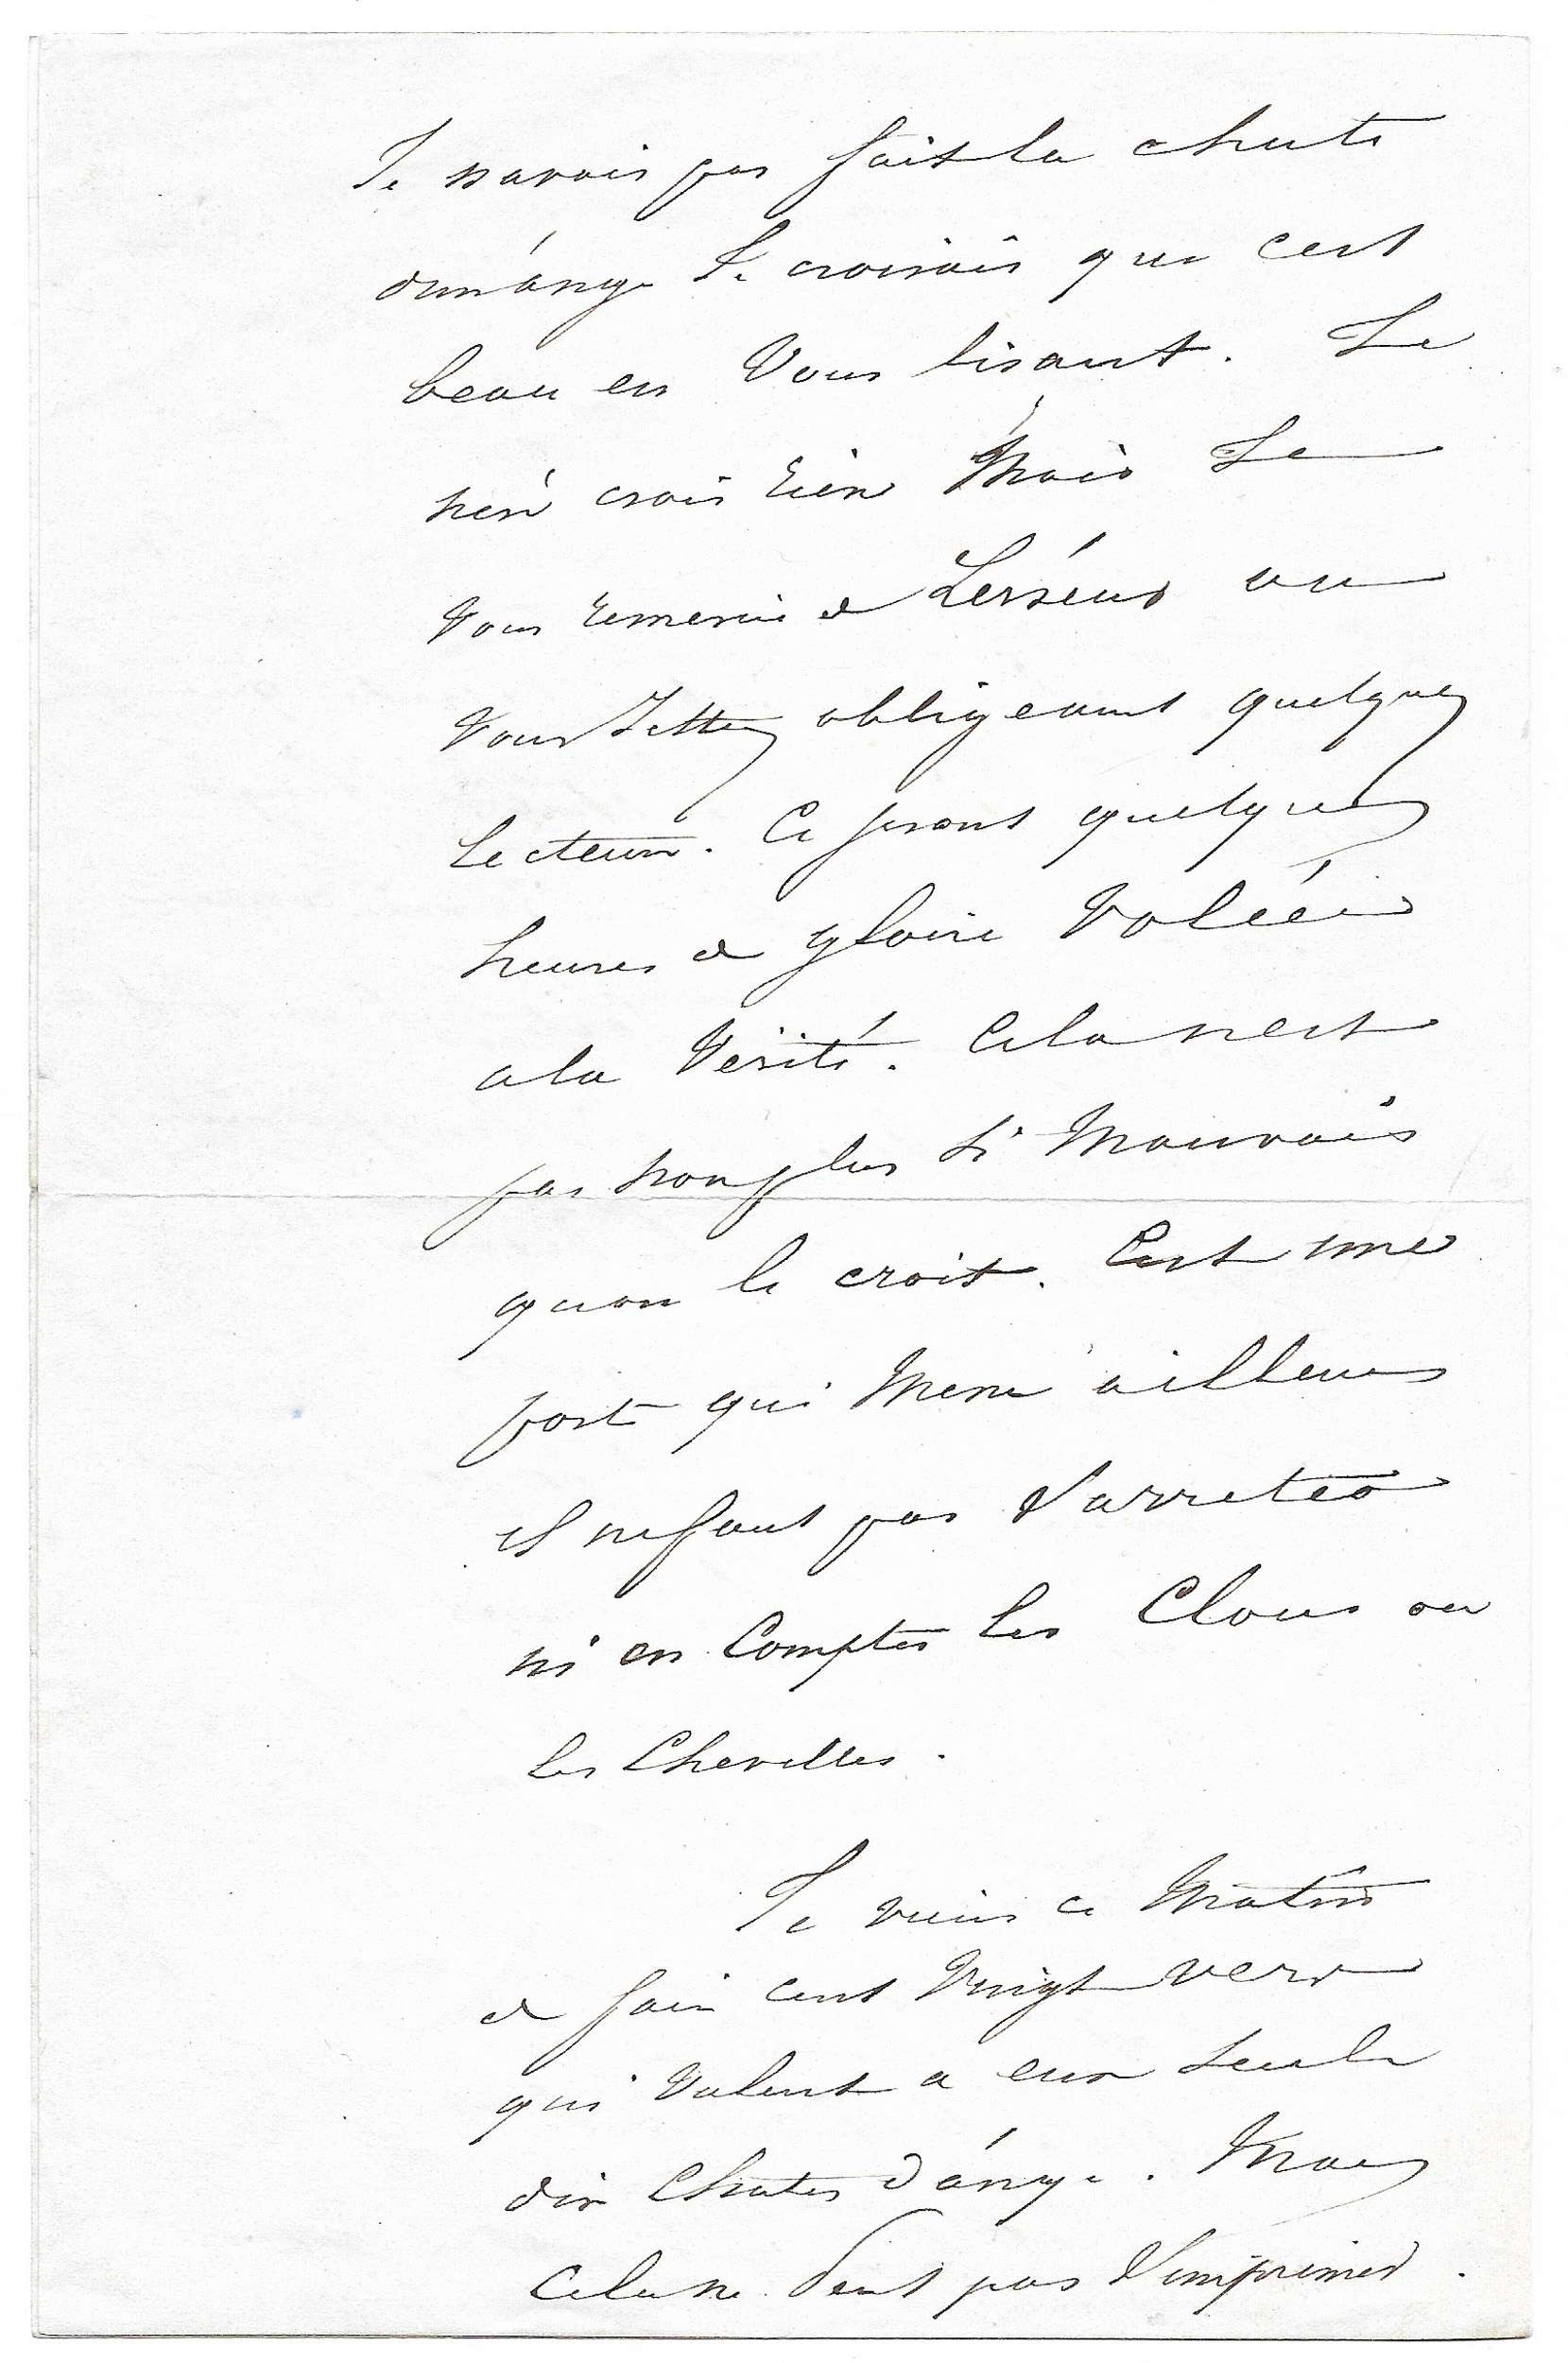 Je navais pas fait la chute
dun ánge Je croirais que cest
beau en Vous lisant. Je
nen crois rien Mais Je
Vous remercie de Lerreur ou
Vous Jettez quelques
Lecteurs. Ce seront quelques
heures de gloire Volées
a la Vérité. Cela nest
pas non plus si Mauvais
quon le croit. Cest une
porte qui Mene ailleurs
il ne faut pas Sarreter
ni en Compter les Clous ou
les Chevilles.
Je viens ce Matin
de faire cent Vingt vers
qui Valent a eux Seuls
dix Chutes dánge. Mais
Cela ne Peut pas Simprimer.